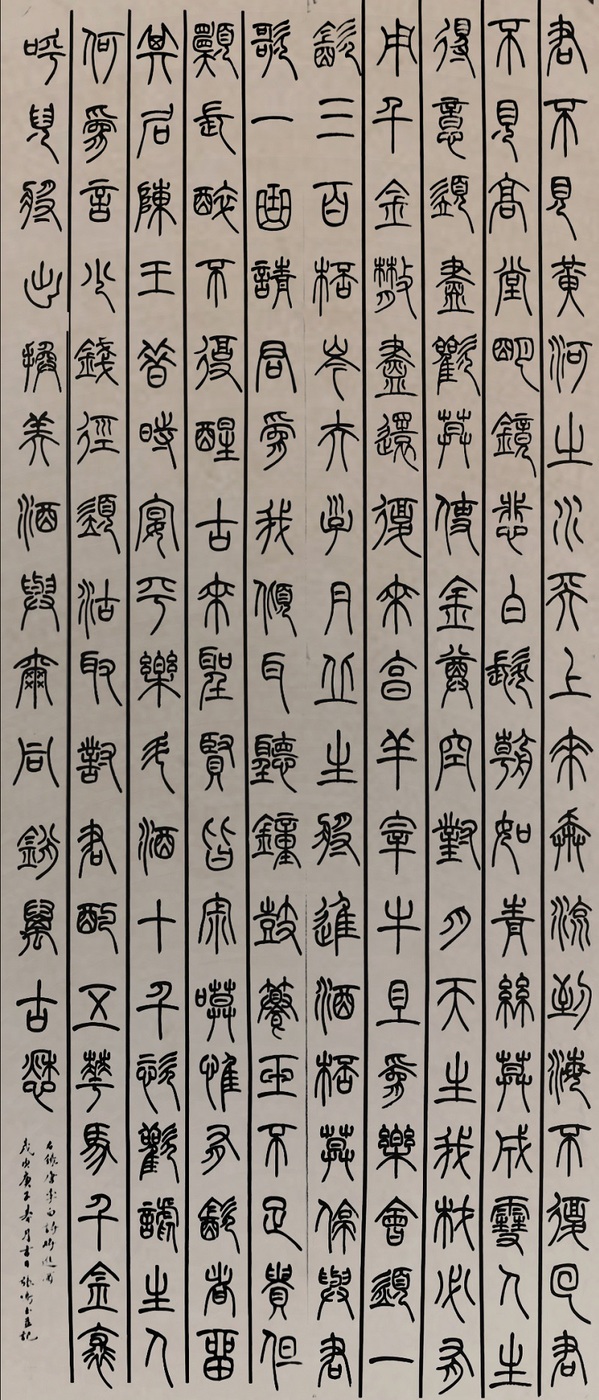 君不見黃河之水天上來奔流到海不復回君
不見高堂明鏡悲白髮朝如青絲莫成雪人生
得意須盡歡莫使金尊空對月天生我材必有
用千金散盡還復來烹羊宰牛且為樂會須一
飲三百杯岑夫子丹丘生將進酒杯莫停與君
歌一曲請君為我傾耳聽鐘鼓饌玉不足貴但
願長醉不復醒古來聖賢皆寂寞惟有飲者留
其名陳王昔時宴平樂斗酒十千恣歡謔主人
何為言少錢徑須沽取對君酌五華馬千金裘
呼兒將出換美酒與爾同銷萬古愁
右錄唐李白詩將進酒
庚子春月